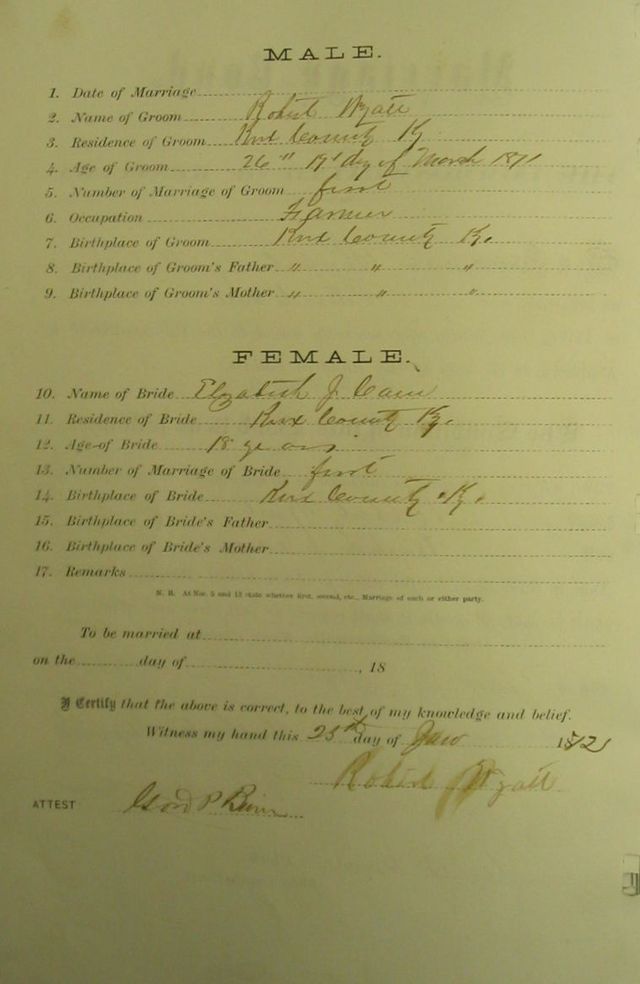 MALE.
1. Date of Marriage
2. Name of Groom Robert Wyatt
3. Residence of Groom Knox County Ky
4. Age of Groom 26" 19" day of March 1871
5. Number of Marriage of Groom first
6. Occupation Farmer
7. Birthplace of Groom Knox County Ky.
8. Birthplace of Groom's Father " " "
9. Birthplace of Groom's Mother " " "
FEMALE.
10. Name of Bride Elizabeth J
11. Residence of Bride Knox County Ky.
12. Age of Bride 18 years
13. Number of Marriage of Bride first
14. Birthplace of Bride Knox County Ky.
15. Birthplace of Bride's Father
16. Birthplace of Bride's Mother
17. Remarks
N. B. At Nos. 5 and 13 state whether first, second, etc., Marriage of each or either party.
To be married at
on the day of , 18
I Certify that the above is correct, to the best of my knowledge and belief.
Witness my hand this 25th day of Jan 1872
Robert Wyatt
ATTEST